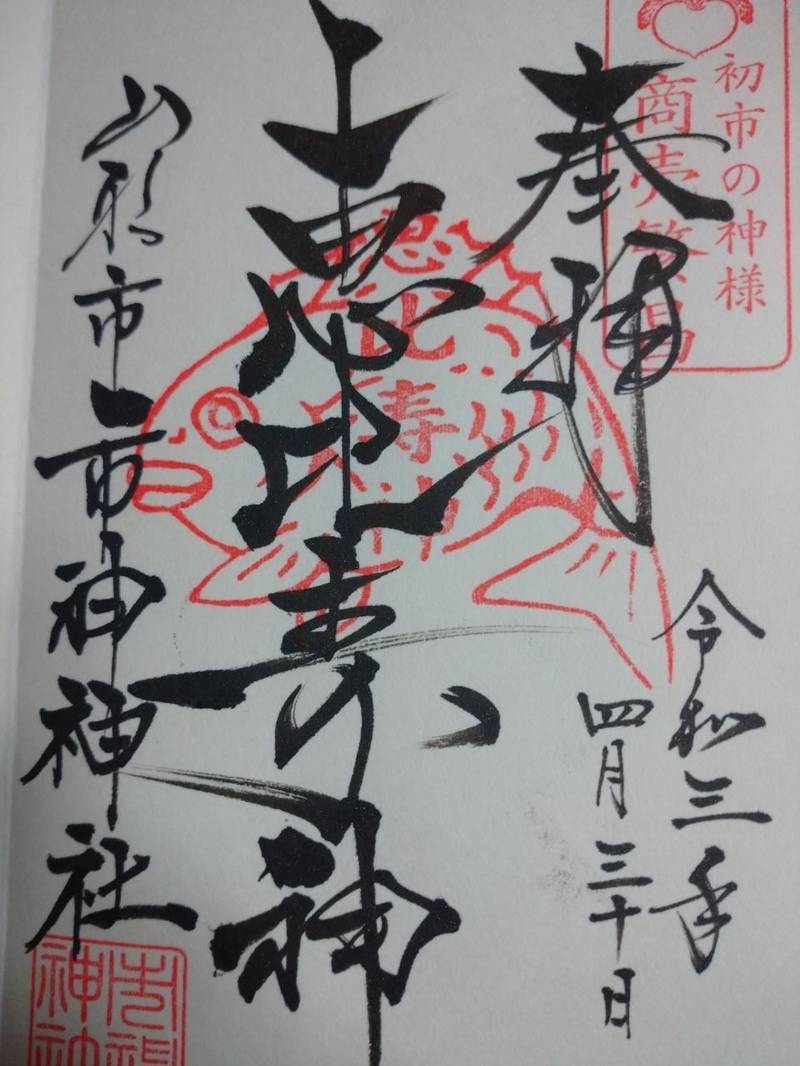 初市の神様
商売繁昌
奉拝
令和三年
四月三十日
上恵比寿神
恵比寿
山形市市神神社
市神
神社